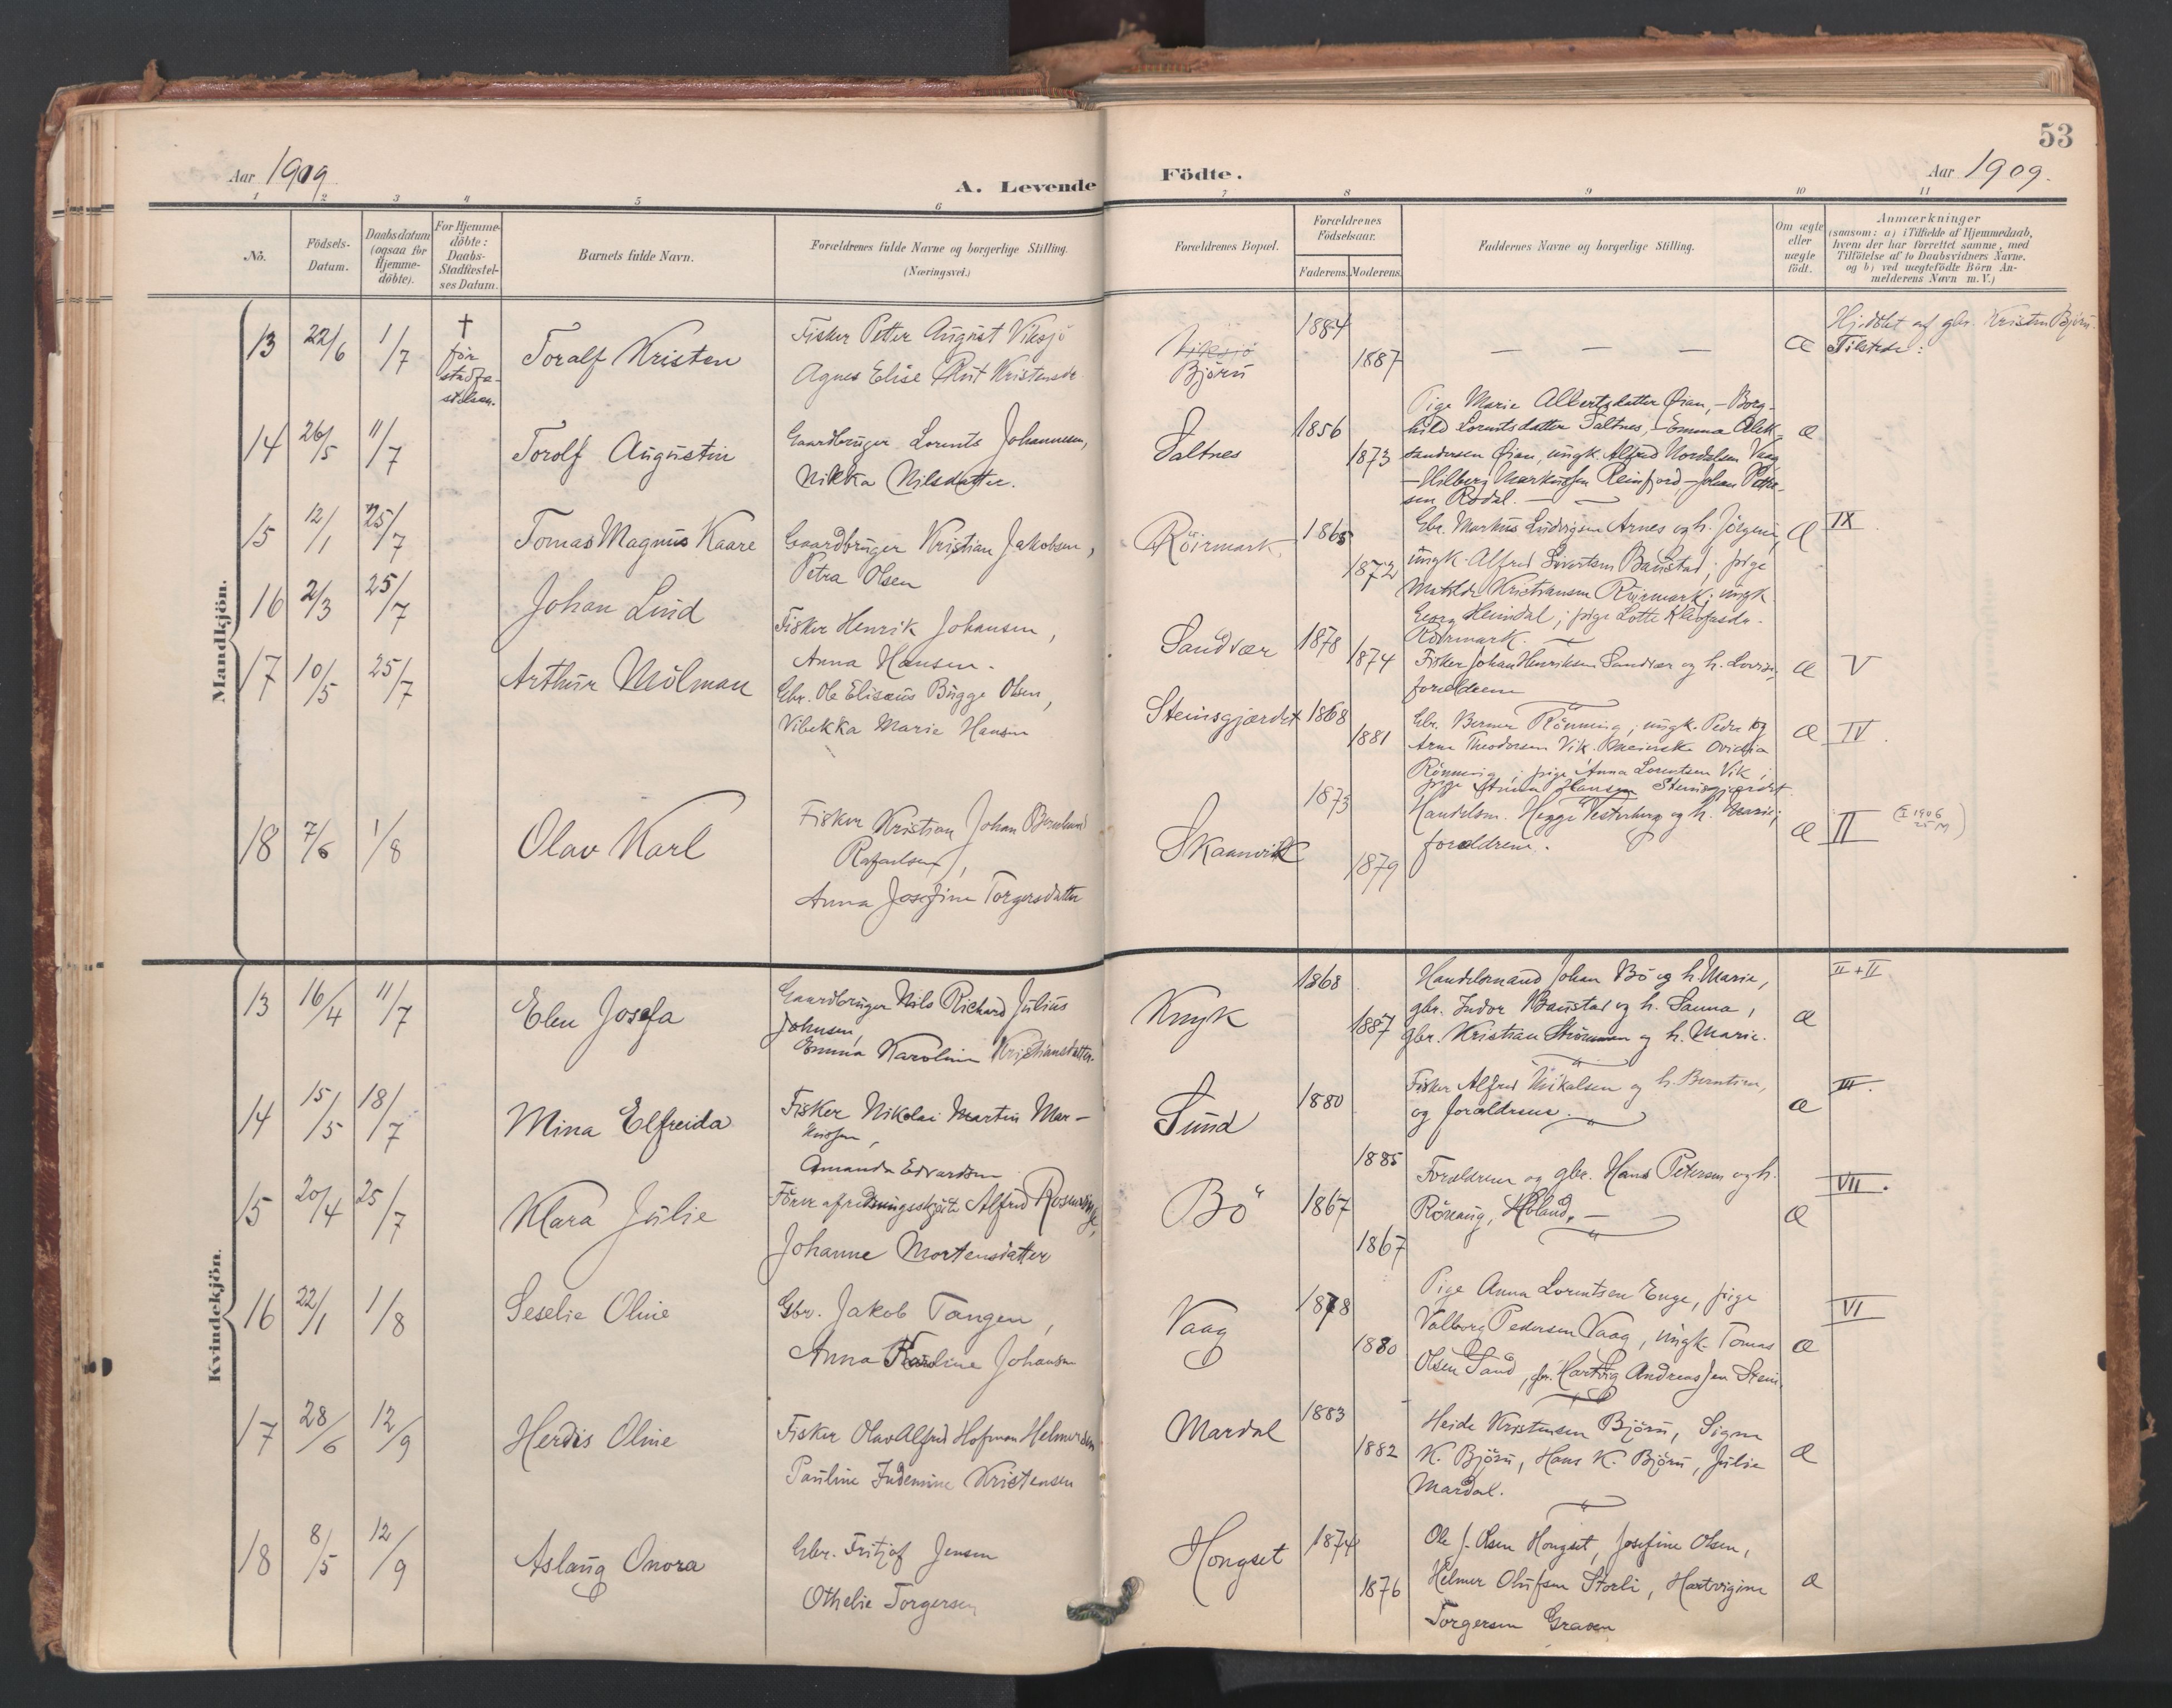 53
Aar 1909. A. Levende Födte. Aar 1909.
1 2 3 4 5 6 7 8 9 10 11
Nô.
Födsels-
Datum.
Daabsdatum
(ogsaa för
Hjemme-
döbte).
For Hjemme-
döbte:
Daabs-
Stadfæstel-
ses Datum.
Barnets fulde Navn.
Forældrenes fulde Navne og borgerlige Stilling.
(Næringsvei.)
Forældrenes Bopæl.
Forældrenes
Födselsaar.
Faderens. Moderens.
Faddernes Navne og borgerlige Stilling.
Om ægte
eller
uægte
födt.
Anmærkninger
(saasom: a) i Tilfælde af Hjemmedaab,
hvem der har forrettet samme, med
Tilföielse af to Daabsvidners Navne.
og b) ved uægtefödte Börn An-
melderens Navn m.V.)
Mandkjön.
13 22/6 1/7
†
för
stadfæ-
stelsen.
Toralf Kristen
Fisker Petter August Viksjö
Agnes Elise Rut Kristensdr.
Viksjö
Björn
1884
1887
— — —
æ
Hjdöbt af gbr. Kristen Björn.
Tilstede:
14 26/5 11/7
Torolf Augustin
Gaardbruger Lorents Johannesen,
Nikka Nilsdatter.
Saltnes
1856
1873
Pige Marie Albertsdatter Öian, – Borg-
hild Lorentsdatter Saltnes, – Emma Alek-
sandersen Öian, ungk. Alfred Nordalsen Vaag
– Hilberg Markussen Reinfjord – Johan Petter-
sen Rödal. —
æ
15 12/1 25/7
Tomas Magnus Kaare
Gaardbruger Kristian Jakobsen,
Petra Olsen
Röirmark.
1865
1872
Gbr. Markus Ludvigsen Arnes og h. Jörgine,
ungk. Alfred Sivertsen Baustad; pige
Matilde Kristiansen Röirmark; ungk.
Georg Heimdal; pige Lotte Kleofasdr.
Röirmark.
æ
IX
16 2/3 25/7
Johan Lind
Fisker Henrik Johansen,
Anna Hansen.
Sandvær
1878
1874
Fisker Johan Henriksen Sandvær og h. Lovise,
forældrene
æ
V
17 10/5 25/7
Arthur Mölman
Gbr. Ole Elisæus Bugge Olsen,
Vibekka Marie Hansen
Steinsgjærdet
1868
1881
Gbr. Berner Rönning, ungk. Peder og
Arne Theodorsen Vik. Meierske Ovidia
Rönning; pige Anna Lorentsen Vik;
pige Hansen Steinsgjærdet.
æ
IV.
18 7/6 1/8
Olav Karl
Fisker Kristian Johan Bernhard
Rafaelsen,
Anna Josefine Torgersdatter
Skaanvik
1873
1879
Handelsm. Hegge Vesterberg og h. Marie;
forældrene.
æ
II
Kvindekjön.
13 16/4 11/7
Elen Josefa
Gaardbruger Nils Richard Julius
Johnsen,
Emma Karoline Kristiansdatter.
Knyk
1868
1887
Handelsmand Johan Bö og h. Marie,
gbr. Indor Baustad og h. Sanna,
gbr. Kristian Strömmen og h. Marie.
æ
II + II
14 15/5 18/7
Mina Elfreida
Fisker Nikolai Martin Mar-
kussen,
Amanda Edvardsen
Sund
1880
1885
Fisker Alfred Mikalsen og h. Berntine,
og forældrene.
æ
III.
15 20/4 25/7
Klara Julie
Förer af redningsskjöite Alfred Rosenvinge,
Johanne Mortensdatter
Bö
1867
1867
Forældrene og gbr. Hans Petersen og h.
Röraug, Höland. —
æ
VII.
16 22/1 1/8
Seselie Oline
Gbr. Jakob Tangen,
Anna Karoline Johansen
Vaag
1878
1880
Pige Anna Lorentsen Enge, pige
Valborg Pedersen Vaag, ungk. Tomas
Olsen Sand, gbr. Hartvig Andreassen Stein.
æ
VI
17 28/6 12/9
Herdis Oline
Fisker Olav Alfred Hofman Helmersen
Pauline Indemine Kristensen
Mardal
1883
1882
Heide Kristensen Björn, Signe
K. Björn, Hans K. Björn, Julie
Mardal.
æ
18 8/5 12/9
Aslaug Onora
Gbr. Fritjof Jensen
Othelie Torgersen
Hongset
1874
1876
Ole J. Olsen Hongset, Josefine Olsen,
Helmer Olufsen Storli, Hartvigine
Torgersen Graven
æ